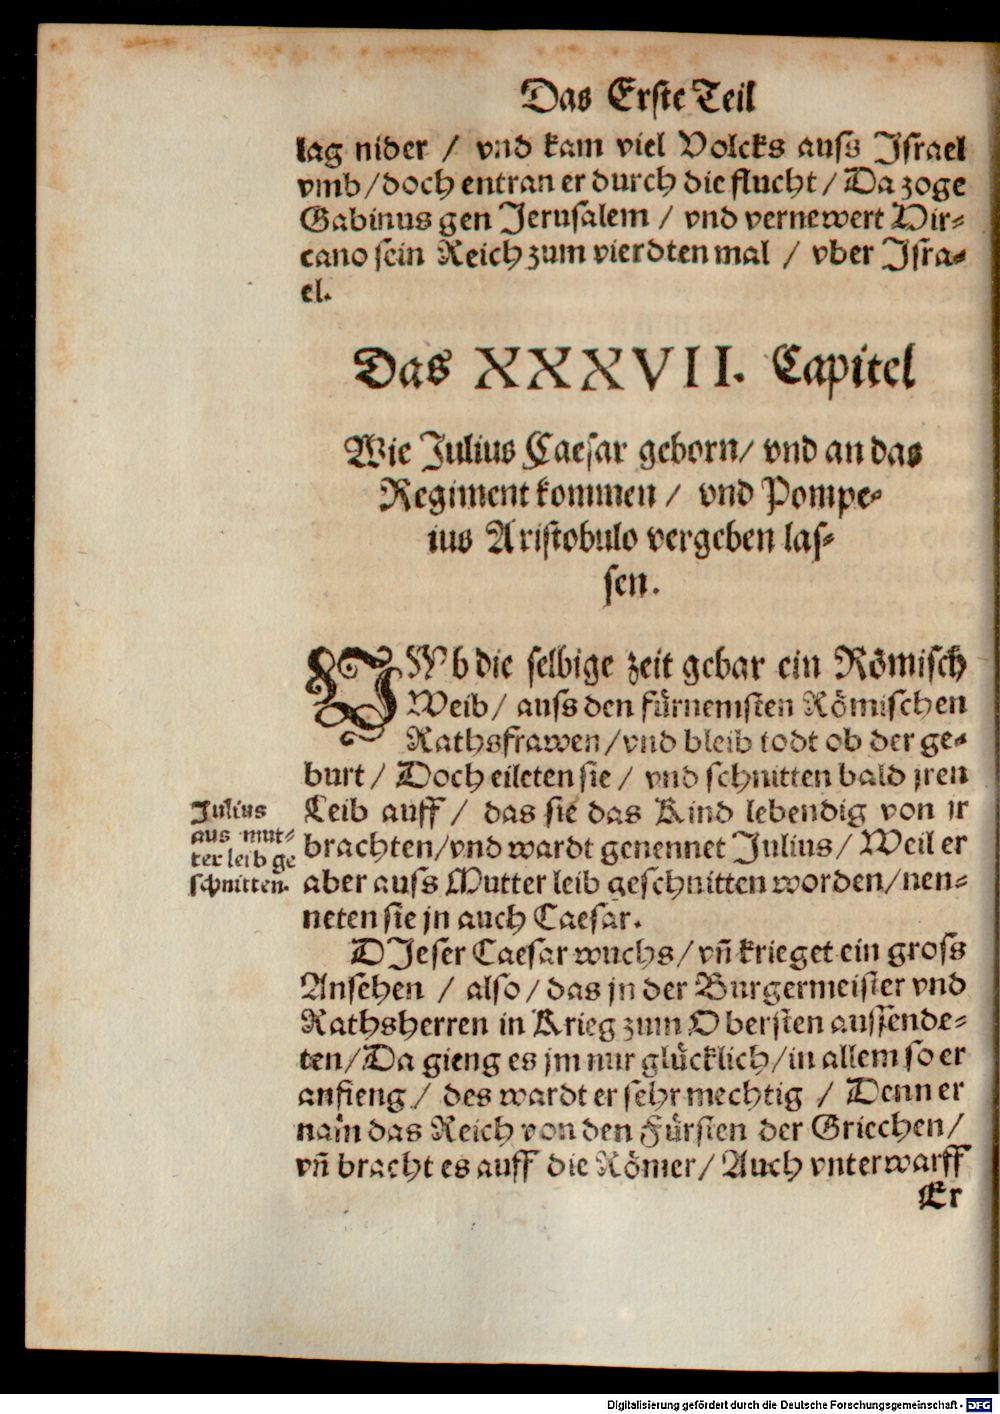 Das Erste Teil
lag nider / vnd kam viel Volcks auss Israel
vmb / doch entran er durch die flucht / Da zoge
Gabinus gen Jerusalem / vnd vernewert Hir⸗
cano sein Reich zum vierdten mal / vber Isra⸗
el.
Das XXXVII. Capitel
Wie Julius Caesar geborn / vnd an das
Regiment kommen / vnd Pompe⸗
ius Aristobulo vergeben las⸗
sen.
VMb die selbige zeit gebar ein Römisch
Weib / auss den fürnemsten Römischen
Rathsfrawen / vnd bleib todt ob der ge⸗
burt / Doch eileten sie / vnd schnitten bald jren
Leib auff / das sie das Kind lebendig von ir
brachten / vnd wardt genennet Julius / Weil er
aber auss Mutter leib geschnitten worden / nen⸗
neten sie jn auch Caesar.
Julius
aus mut⸗
ter leib ge
schnitten.
DJeser Caesar wuchs / vñ krieget ein gross
Ansehen / also / das jn der Burgermeister vnd
Rathsherren in Krieg zum Obersten aussende⸗
ten / Da gieng es jm nur glücklich / in allem so er
anfieng / des wardt er sehr mechtig / Denn er
nam das Reich von den Fürsten der Griechen /
vñ bracht es auff die Römer / Auch vnterwarff
Er
Digitalisierung gefördert durch die Deutsche Forschungsgemeinschaft - DFG